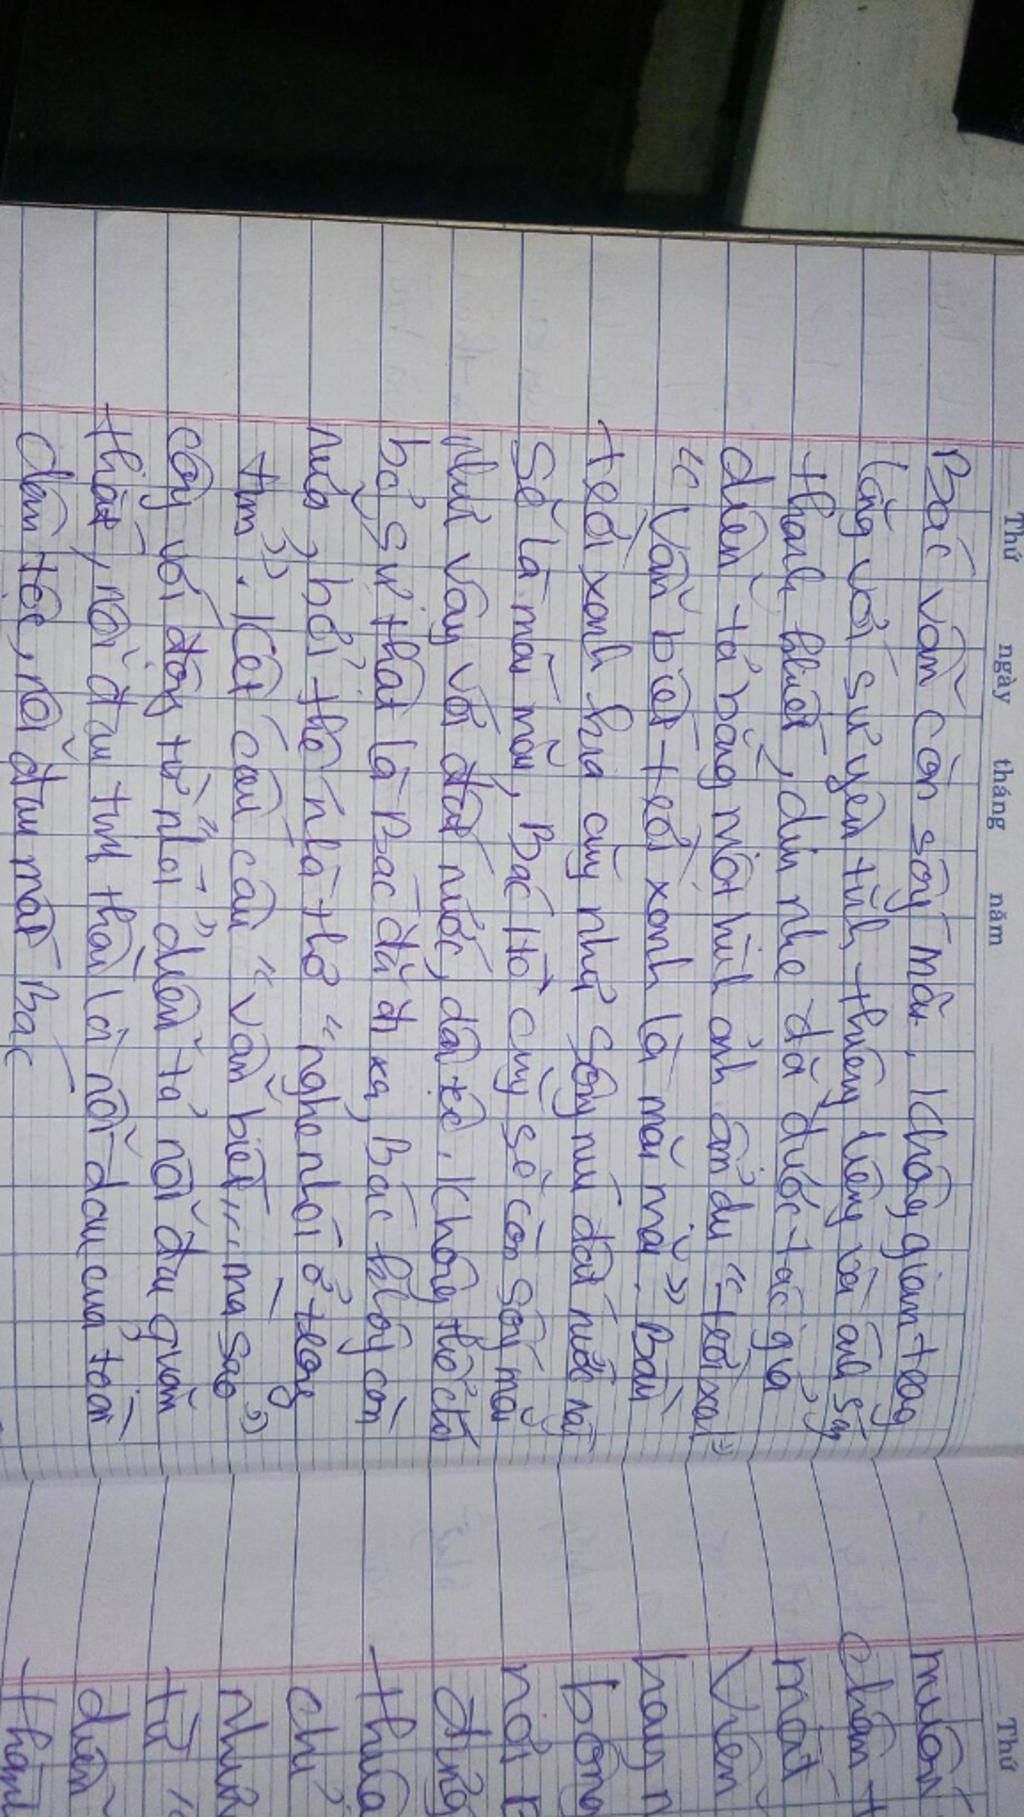 Thứ ngày tháng năm
Bác vẫn còn sống mãi. Không gian trong
lăng với sự yên tĩnh, thiêng liêng và ánh sáng
thanh khiết, dịu nhẹ đã được tác giả
diễn tả bằng một hình ảnh ẩn dụ "trời xanh"
"Vẫn biết trời xanh là mãi mãi". Bầu
trời xanh kia cũng như sông núi đất nước này
sẽ là mãi mãi, Bác Hồ cũng sẽ còn sống mãi
như vậy với đất nước, dân tộc. Không thể chối
bỏ sự thật là Bác đã đi xa, Bác không còn
nữa, bởi thế nhà thơ "nghe nhói ở trong
tim". Kết cấu câu "vẫn biết... mà sao"
cùng với động từ "nhói" diễn tả nỗi đau quặn
thắt, nỗi đau tinh thần là nỗi đau của toàn
dân tộc, nỗi đau mất Bác
Thứ
muốn
chân
một
Viễn
hay n
bông
nơi
đứng
thừa
chỉ
như
từ "
diễn
thành